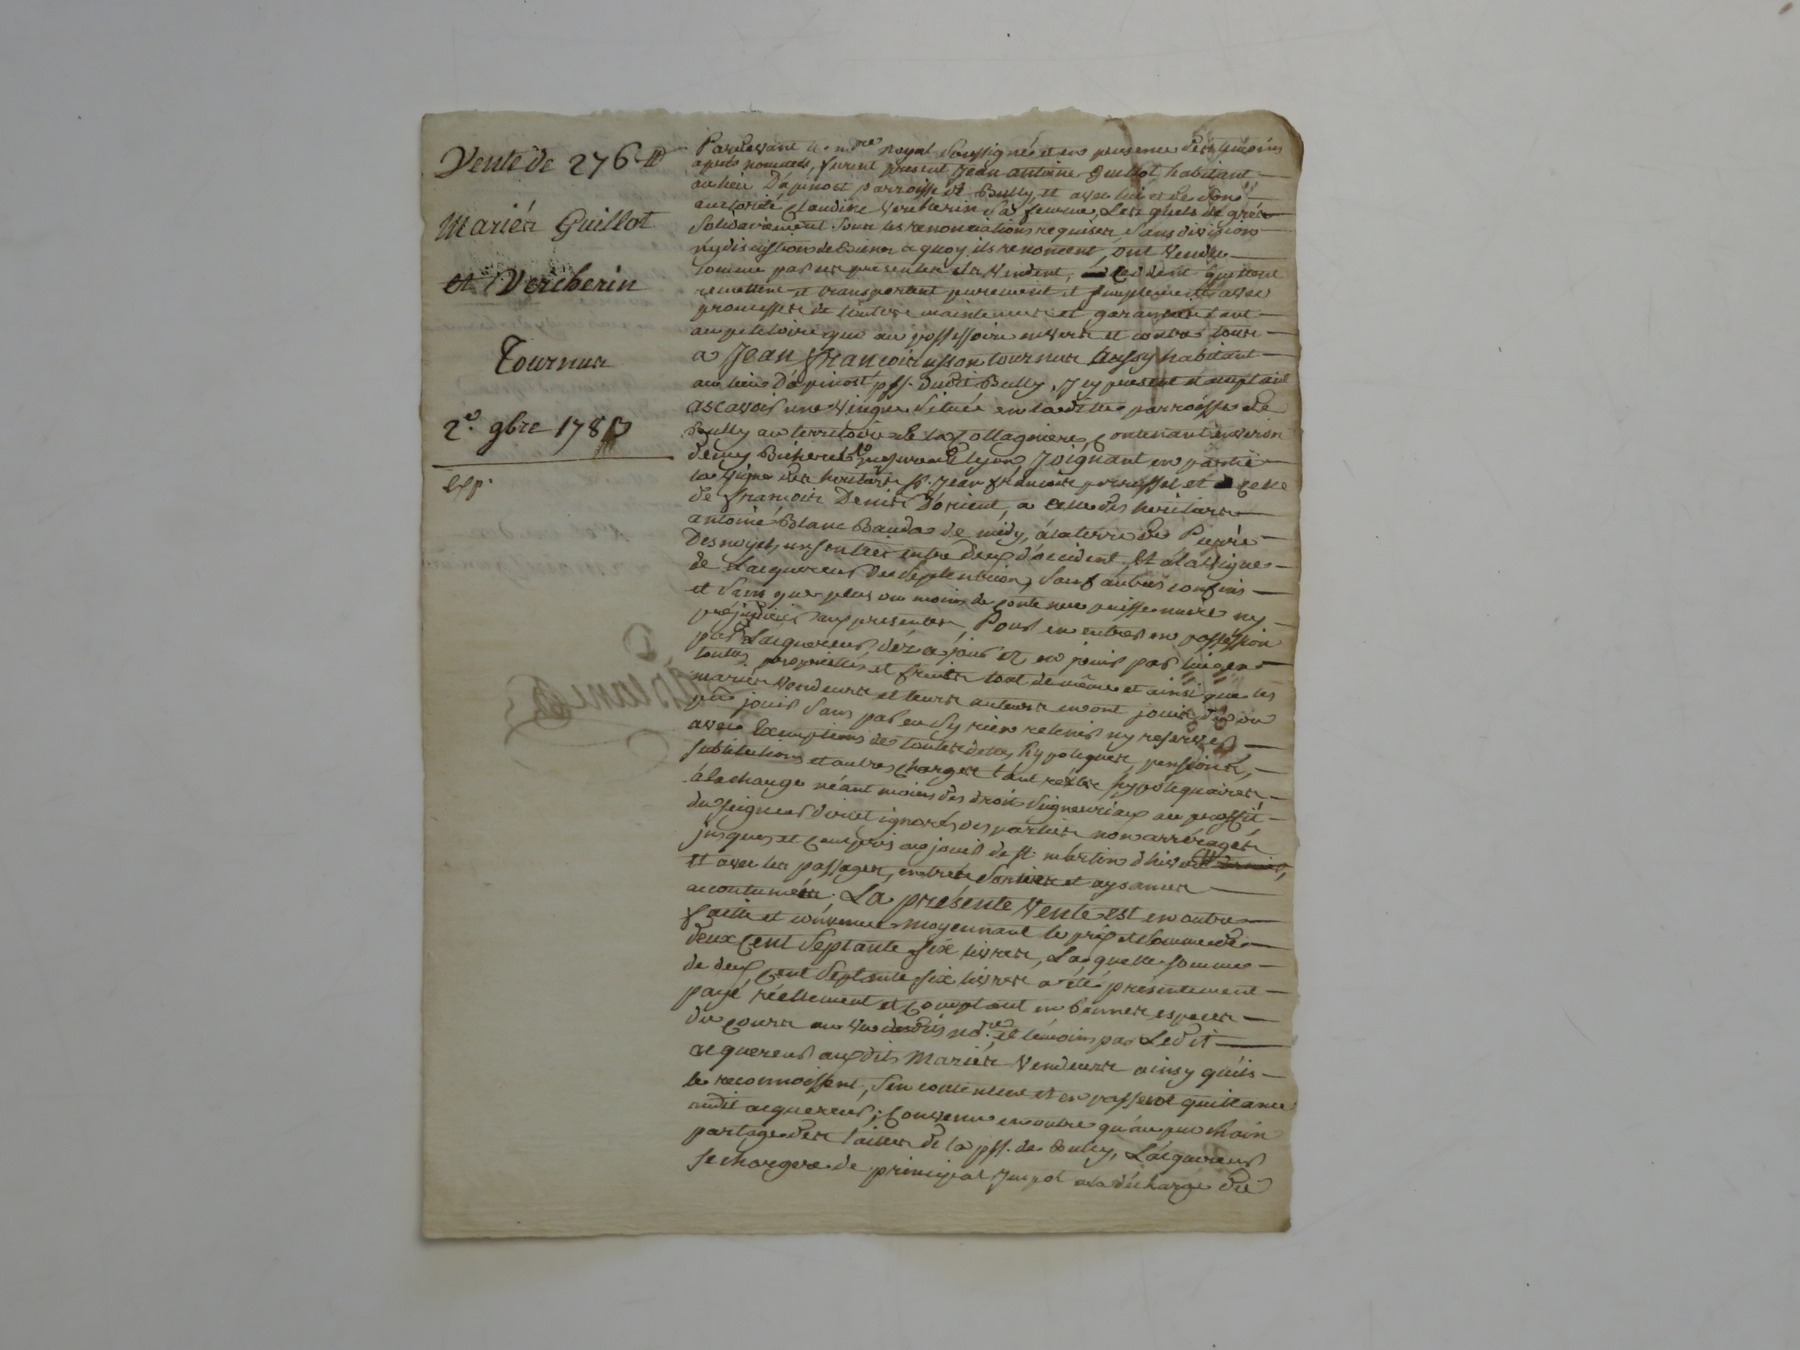 Vente de 276 ₶
Mariés Guillot
et Vercherin
Tournus
2e. 9bre 178
Exp.
Pardevant le nre royal soussigné et en presence des temoins
apres nommés, furent present Jean antoine Guillot habitant
au lieu D'apinost parroisse de Bully, et avec lui et de son
authorité Claudine Vercherin sa femme, Lesquels de gré
solidairement sous les renonciations requises sans division
ny discussion de biens a quoy ils renoncent, ont vendu
comme par ces presentes ils vendent, cedent quittent
remettent et transportent purement et simplement avec
promesses de toutte maintenue et garantie tant
au petitoire que au possessoire envers et contre tous
a Jean François tournus aussy habitant
au lieu D'apinost pss. dudit Bully, Icy present et acceptant
ascavoir une vingne située en laditte parroisse de
Bully au territoire de la Contenant environ
demy Bicherée mesure de lyon, Joignant en partie
la vigne des heritiers Sr. Jean françois et celle
de francois Denis D'orient, a celle des heritiers
antoine Blanc Bauda de midy, à la terre de Pierre
Desnoyel, un sentier entre deux d'occident, Et a la vigne
de Lacquereur de septentrion, sauf autres confins
et sans que plus ou moins de contenue puisse nuire ny
prejudicier aux presentes, Pour en entrer en possession
par Lacquereur, dez ce jour et en jouir par luy en
touttes proprietés et fruits tout de même et ainsi que les
mariés vendeurs et leurs auteurs en ont jouis dû ou
pû jouir sans par eu s'y rien retenir ny reserver
avec Exemptions de touttes dettes, hypoteques, pensions,
substitutions et autres charges tant réelles hypotequaires
à la charge néantmoins des droits seigneuriaux au proffit
du seigneur direct ignorés des parties non arréragés
jusques et compris au jour de st. martin d'hiver
et avec les passages, entrées sorties et aysances
accoutumées. La présente Vente est en outre
faitte et convenue moyennant le prix et somme de
deux Cent septante six livres, Laquelle somme
de deux Cent septante six livres a été présentement
payé réellement et comptant en bonnes especes
du cours au vu desdits nore et temoins par Ledit
acquereur auxdits Mariés Vendeurs ainsy qu'ils
le reconnoissent, s'en contentent et en passent quittance
audit acquereur; Convenu en outre qu'au prochain
partage des tailles de la pss. de Bully, L'acquereur
se chargera de principal Impot a la décharge des